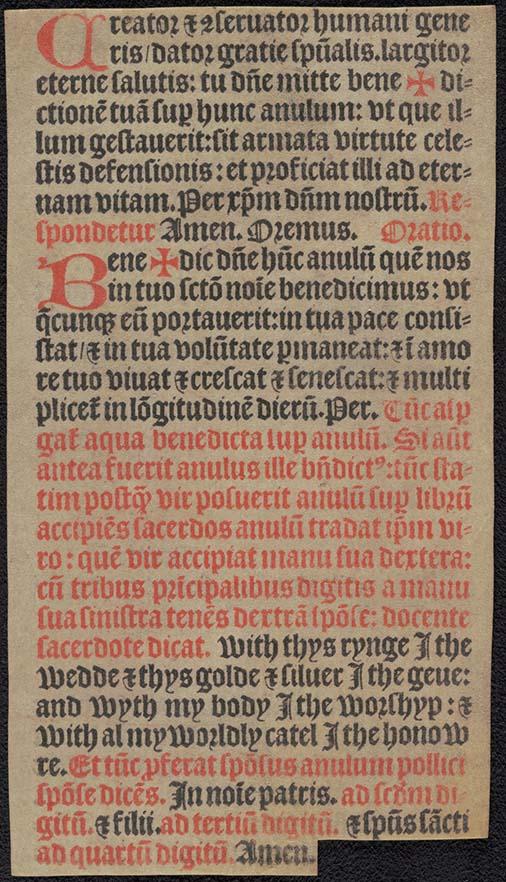 Creator ⁊ ꝯseruator humani gene
ris/dator gratie spũalis.largitor
eterne salutis: tu dñe mitte bene ✠ di⸗
ctionẽ tuã suꝑ hunc anulum: vt que il⸗
lum gestauerit:sit armata virtute cele⸗
stis defensionis: et proficiat illi ad eter⸗
nam vitam.Per xp̄m dñm nostrũ.Re⸗
spondetur Amen. Oremus. Oratio.
Bene ✠ dic dñe hũc anulũ quẽ nos
in tuo sctõ noĩe benedicimus: vt
q̃cunqꝫ eũ portauerit:in tua pace consi⸗
stat/⁊ in tua volũtate ꝑmaneat:⁊ ĩ amo
re tuo viuat ⁊ crescat ⁊ senescat:⁊ multi
plicet᷑ in lõgitudinẽ dierũ.Per. Tũc aspꝑ
gat᷑ aqua benedicta suꝑ anulũ. Si aũt
antea fuerit anulus ille bñdictꝰ:tũc sta⸗
tim postq̃ vir posuerit anulũ suꝑ librũ
accipiẽs sacerdos anulũ tradat ip̄m vi⸗
ro: quẽ vir accipiat manu sua dextera:
cũ tribus prĩcipalibus digitis a manu
sua sinistra tenẽs dextrã spõse: docente
sacerdote dicat. With thys rynge I the
wedde ⁊ thys golde ⁊ siluer I the geue:
and wyth my body I the worshyp: ⁊
with al my worldly catel I the honow
re.Et tũc ꝓferat spõsus anulum pollici
spõse dicẽs. In noĩe patris. ad scd̃m di⸗
gitũ. ⁊ filii.ad tertiũ digitũ. ⁊ spũs sãcti
ad quartũ digitũ. Amen.